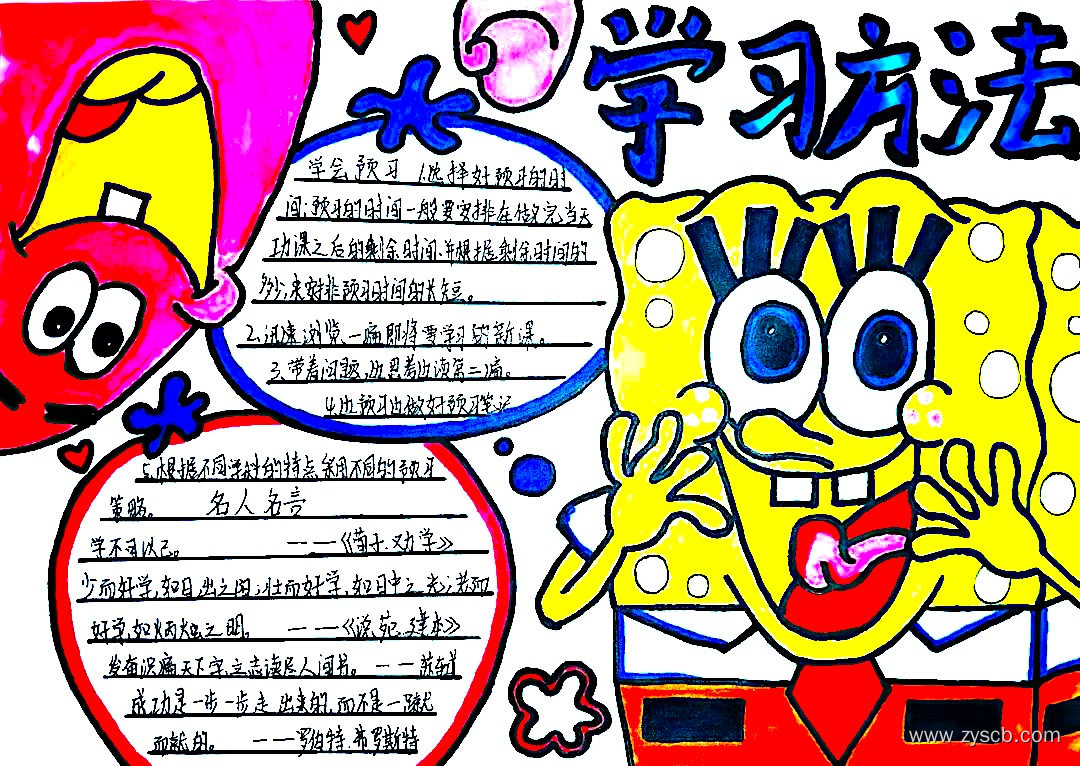 学习方法
学会预习 1.选择好预习的时
间:预习的时间一般要安排在做完当天
功课之后的剩余时间,并根据剩余时间的
多少,来安排预习时间的长短。
2.迅速浏览一遍即将要学习的新课。
3.带着问题,边思考边读第二遍。
4.边预习边做好预习笔记
5.根据不同学科的特点采用不同的预习
策略。 名人名言
学不可以已。 ——《荀子·劝学》
少而好学,如日出之阳;壮而好学,如日中之光;老而
好学,如炳烛之明。 ——《说苑·建本》
发奋识遍天下字,立志读尽人间书。 ——苏轼
成功是一步一步走出来的,而不是一蹴
而就的。 ——罗伯特·弗罗斯特
www.zyscb.com